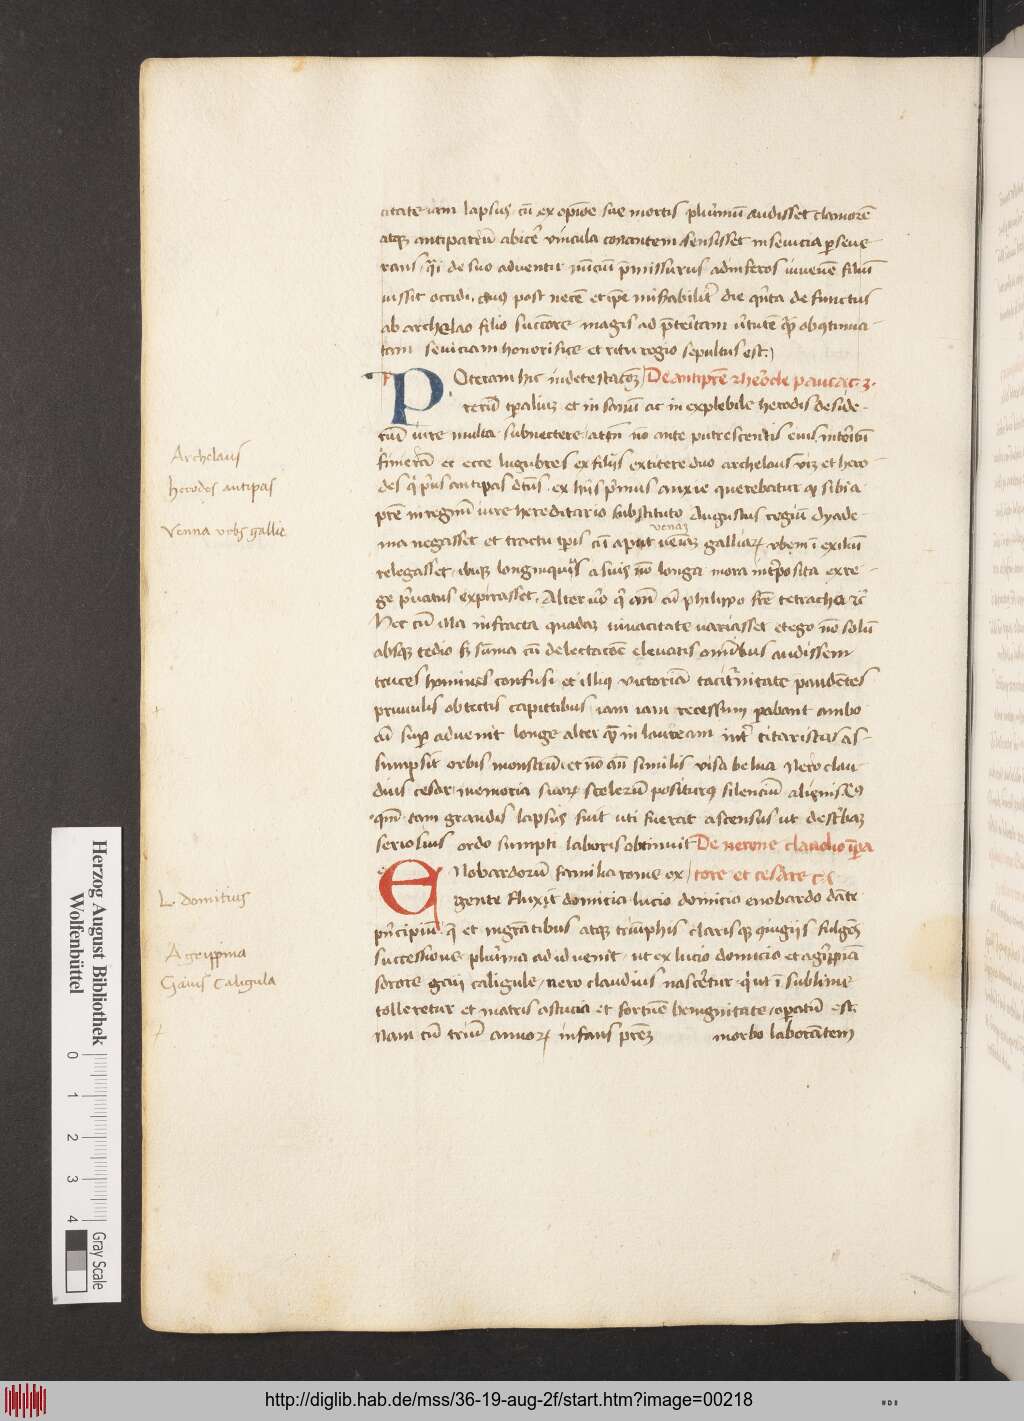 citate iam lapsus, cū ex opīoe sue mortis plurimū audisset clamorē
atq; antipatrū abicē vincula conantem sensisset in sevicia perseve-
rans, qsi de suo adventu nūciū p̄missurus ad inferos iuvenē filiū
iussit occidi, cuius post necē et ip̄e misēabilit̄ die qn̄ta defunctus
ab archelao filio successore magis ad p̄teritam v̄tutē q̄ ob continua-
tam seviciam honorifice et ritu regio sepultus est.
POteram hic in detestacōēz De antip̄re z herode pauca c. 3.
rerū tp̄aliuz et in sanū ac in explebile herodis deside-
riū iure multa subnectere, attn̄ nō ante putrescentis eius inteirib
finierā et ecce lugubres ex filijs extitere duo archelaus viz et hero-
des q̄ p̄us antipas dc̄us. ex hijs p̄mus anxie querebatur q sibi a
p̄re in regnū iure hereditario substituto Augustus regiū dyade-
venaz
ma negasset et tractu tp̄is cū aput venaz galliar̄ vrbem ī exiliū
relegasset, ibiq; longinquus a suis nō longa mora int̄posita ex re-
ge p̄vatus expirasset. Alter v̄o q̄ an̄ cū philippo fr̄e tetracha rc̄
Hec cū illa infracta quadaz vivacitate variasset et ego nō solū
absq; tedio sz sūma cū delectacōe elevatis aurib̄us audissem
truces homines confusi et illius victoriā taciturnitate pandētes
privulis obtectis capittibus, iam iam recessum parabant ambo
cū sup advenit longe alter q̄ in lauream int̄ citaristas as-
sumpsit orbis monstrū, et nō an̄ similis visa belua Nero clau-
dius cesar, memoria suor̄ scelerū positurus silenciū alienis eius
qm̄ tam grandis lapsus fuit uti fuerat ascensus ut describaz
seriosius ordo sumpti laboris obtinuit De nerone claudio īpera
ENobardorū familia rome ex tore et cesare c. c.
gente fluxit domicia lucio domicio enobardo dāte
pn̄cipiū q̄ et migrātibus atq; triūphis claris q; quigijs fulgēs
successione plurima ad id venit, ut ex lucio domicio et agrippīa
sorore gaij caligule, nero claudius nasceretur q̄ ut ī sublime
tolleretur et matris astucia et fortunē benignitate, operatū est.
Nam cū triū annor̄ infans p̄rez morbo laborātem
Archelaus
herodes antipas
Venna urbs gallie
L. domitius
Agrippina
Gaius Caligula
Herzog August Bibliothek
Wolfenbüttel
0 1 2 3 4
Gray Scale
http://diglib.hab.de/mss/36-19-aug-2f/start.htm?image=00218